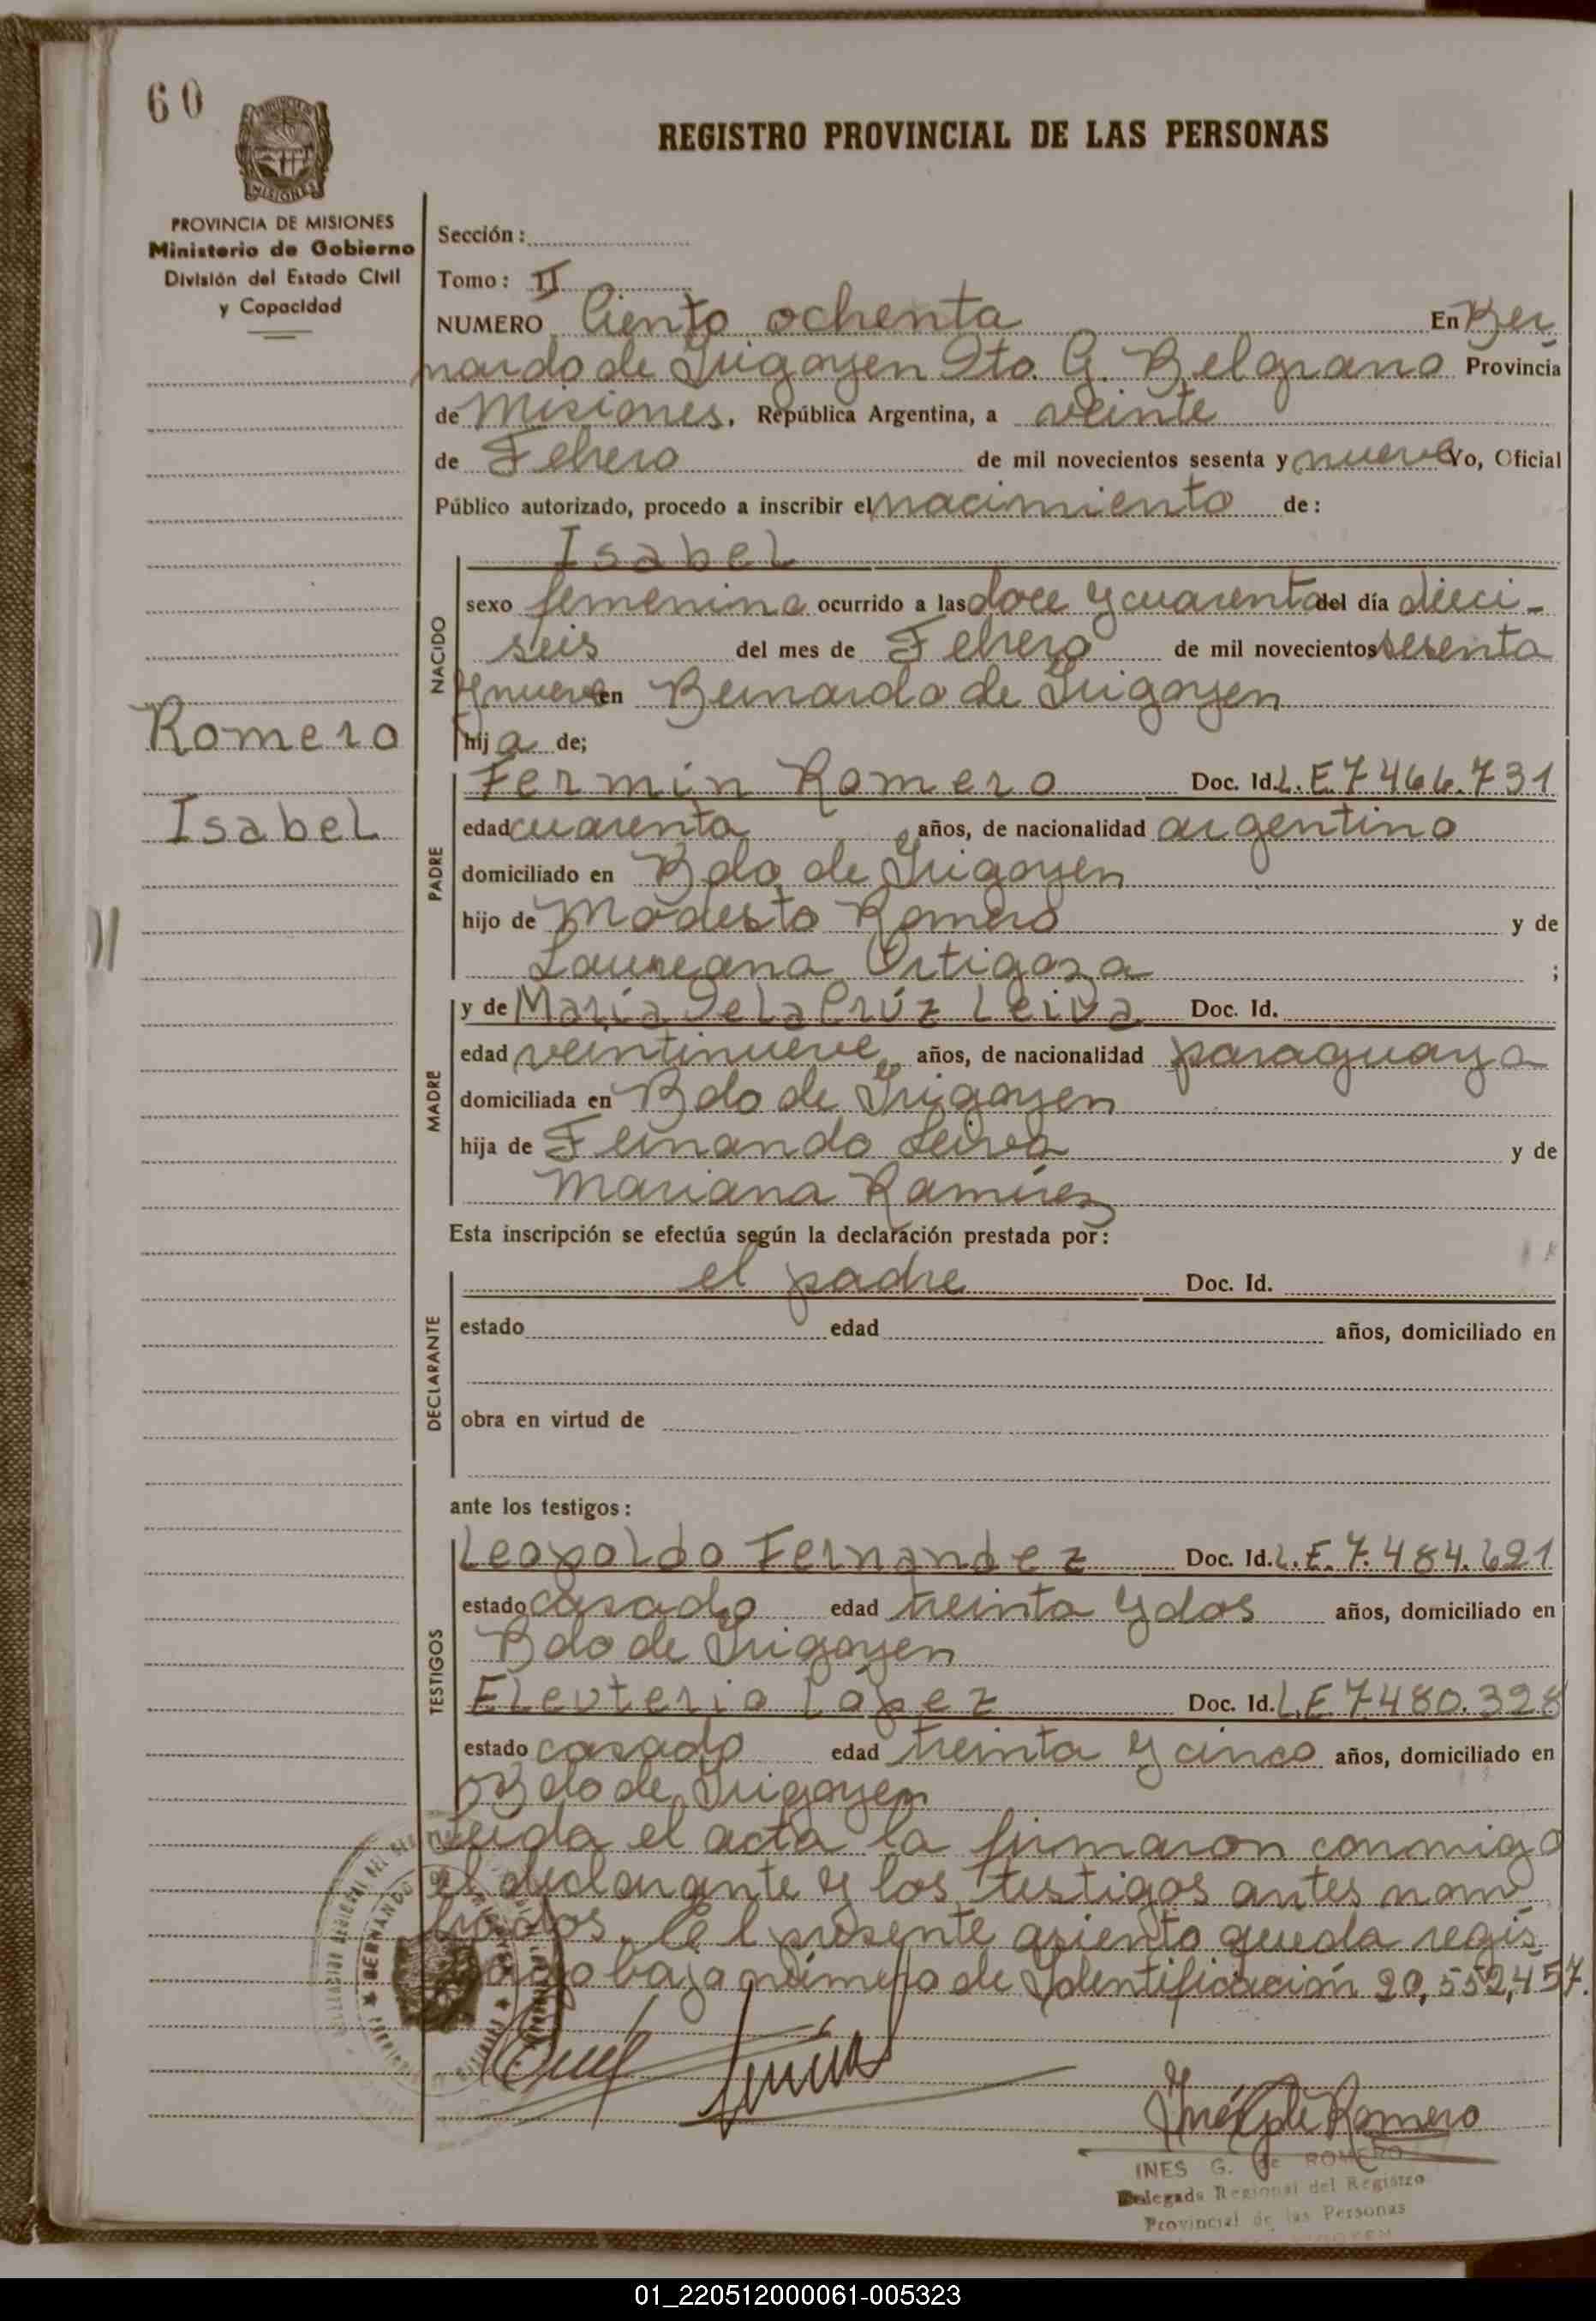 60
REGISTRO PROVINCIAL DE LAS PERSONAS
PROVINCIA DE MISIONES
Ministerio de Gobierno
División del Estado Civil
y Capacidad
Sección:
Tomo: II
NUMERO Ciento ochenta En Ber
nardo de Irigoyen Dto. G. Belgrano Provincia
de Misiones. República Argentina, a veinte
de Febrero de mil novecientos sesenta y nueve Yo, Oficial
Público autorizado, procedo a inscribir el nacimiento de:
Isabel
NACIDO
sexo femenino ocurrido a las doce y cuarenta del día dieci-
seis del mes de Febrero de mil novecientos sesenta
y nueve en Bernardo de Irigoyen
hija de;
Romero
Isabel
PADRE
Fermin Romero Doc. Id. L.E 7466.731
edad cuarenta años, de nacionalidad argentino
domiciliado en Bdo de Irigoyen
hijo de Modesto Romero y de
Laureana Ortigoza ;
MADRE
y de María De La Crúz Leiva Doc. Id.
edad veintinueve años, de nacionalidad paraguaya
domiciliada en Bdo de Irigoyen
hija de Fernando Leiva y de
Mariana Ramírez
Esta inscripción se efectúa según la declaración prestada por:
DECLARANTE
el padre Doc. Id.
estado edad años, domiciliado en
obra en virtud de
ante los testigos:
TESTIGOS
Leopoldo Fernandez Doc. Id. L.E. 7.484.621
estado casado edad treinta y dos años, domiciliado en
Bdo de Irigoyen
Eleuterio López Doc. Id. L.E 7480.328
estado casado edad treinta y cinco años, domiciliado en
Bdo de Irigoyen
Leida el acta la firmaron conmigo
el declarante y los testigos antes nom
brados. El presente asiento queda regis
trado bajo número de Identificación 20,552,457.
Inés G de Romero
INES G. de ROMERO
Delegada Regional del Registro
Provincial de las Personas
01_220512000061-005323